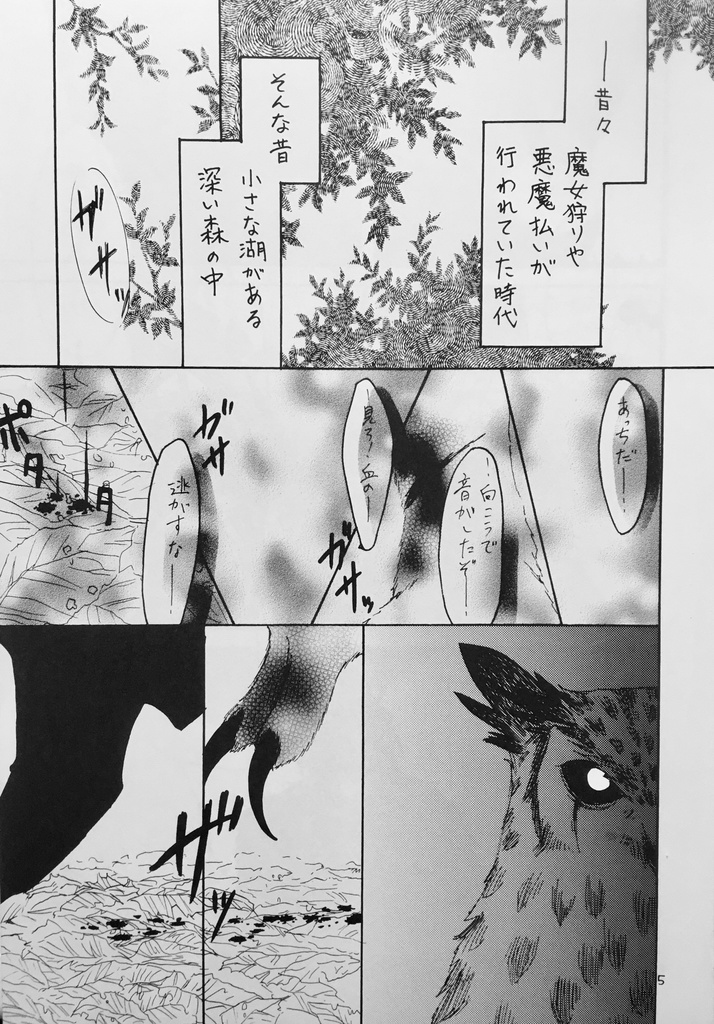 ―昔々
魔女狩りや
悪魔払いが
行われていた時代
そんな昔
小さな湖がある
深い森の中
ガサッ
あっちだ―…
…向こうで
音がしたぞ―
―見ろ！血の―
ガサ
ガサッ
逃がすな―…
ポタタ
ザッ
5